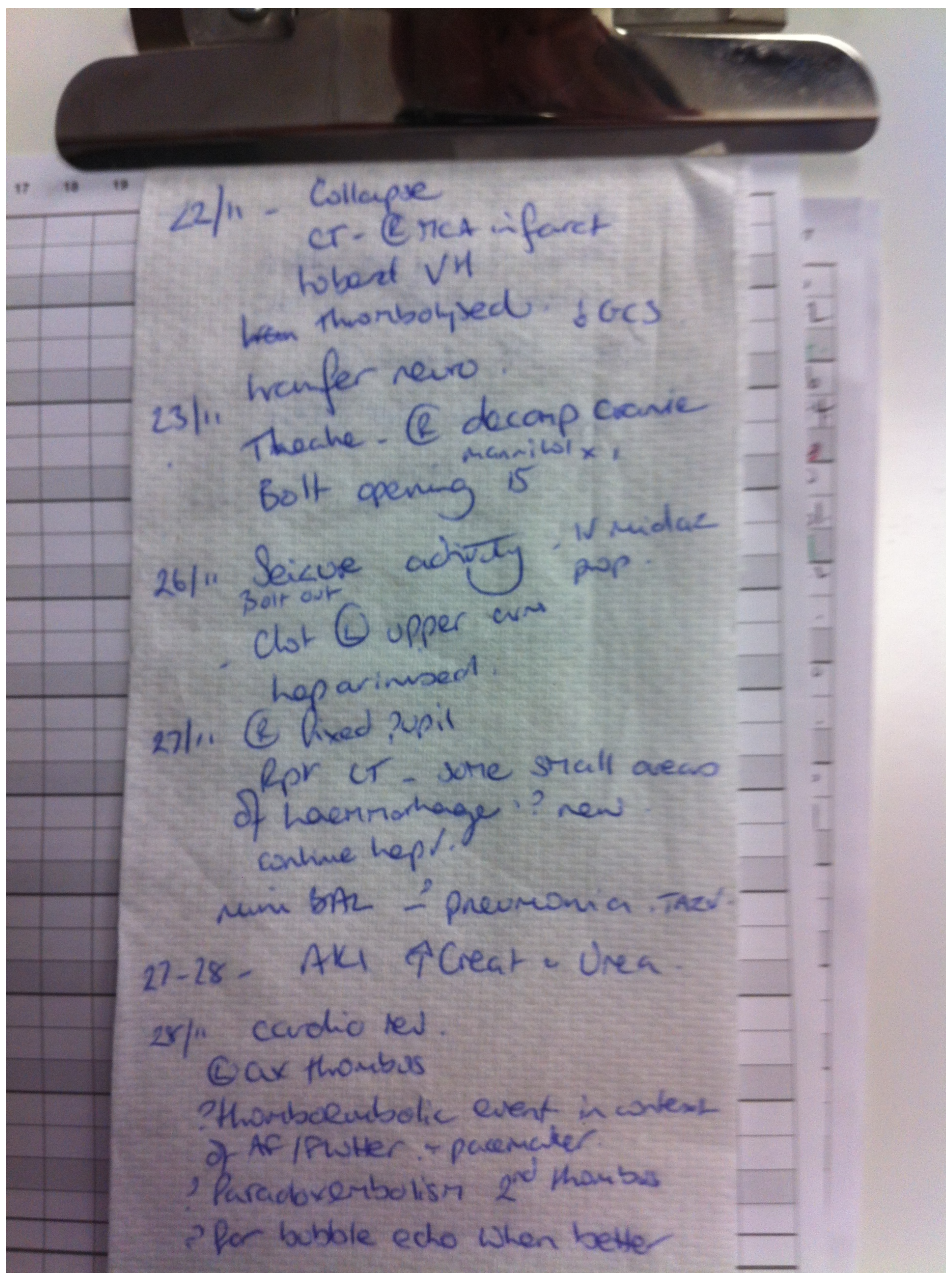 17 18 19
22/11 - Collapse
CT - Ⓡ MCA infarct
VH
thrombolysed. ↓GCS
transfer neuro.
23/11
Theatre - Ⓡ decomp cranie
mannitol x 1
Bolt opening 15
26/11 Seizure activity - IV midaz
Bolt out prop.
- Clot Ⓛ upper arm
heparinised.
27/11 Ⓡ fixed pupil
Rpt CT - some small areas
of haemorrhage ? new.
continue hep
mini BAL - ? pneumonia. TAZ
27-28 - AKI ↑Creat + Urea.
28/11 cardio rev.
Ⓛ ax thrombus
? thromboembolic event in context
of AF/Flutter + pacemaker
? Paradoxembolism 2nd thrombus
? for bubble echo when better